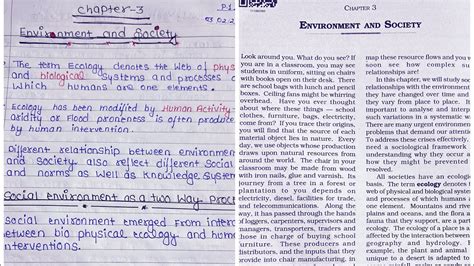 Chapter-3
P-1
03.02.2
Environment and Society
The term Ecology denotes the Web of phys
and biological Systems and processes o
which humans are one elements.
Ecology has been modified by Human Activity
aridity or Flood proneness is often produc
by human intervention.
Different relationship between environmen
and society also reflect different Social
and norms as well as Knowledge System
Social environment as a two Way Proc
Social environment emerged From inter
between bio physical ecology and human
interventions.
CHAPTER 3
ENVIRONMENT AND SOCIETY
Look around you. What do you see? If
you are in a classroom, you may see
students in uniform, sitting on chairs
with books open on their desk. There
are school bags with lunch and pencil
boxes. Ceiling fans might be whirring
overhead. Have you ever thought
about where these things — school
clothes, furniture, bags, electricity,
come from? If you trace their origins,
you will find that the source of each
material object lies in nature. Every
day, we use objects whose production
draws upon natural resources from
around the world. The chair in your
classroom may be made from wood
with iron nails, glue and varnish. Its
journey from a tree in a forest or
plantation to you depends on
electricity, diesel, facilities for trade,
and telecommunications. Along the
way, it has passed through the hands
of loggers, carpenters, supervisors and
managers, transporters, traders and
those in charge of buying school
furniture. These producers and
distributors, and the inputs that they
provide into chair manufacturing, in
map these resource flows and you w
soon see how complex su
relationships are!
In this chapter, we will study so
relationships with the environment
they have changed over time and
they vary from place to place.
important to analyse and interp
such variations in a systematic w
There are many urgent environmen
problems that demand our attentio
To address these crises effectively,
need a sociological framework
understanding why they occur
how they might be prevented
resolved.
All societies have an ecologi
basis. The term ecology denotes
web of physical and biological syste
and processes of which humans a
one element. Mountains and rive
plains and oceans, and the flora
fauna that they support, are a part
ecology. The ecology of a place is a
affected by the interaction between
geography and hydrology. F
example, the plant and animal